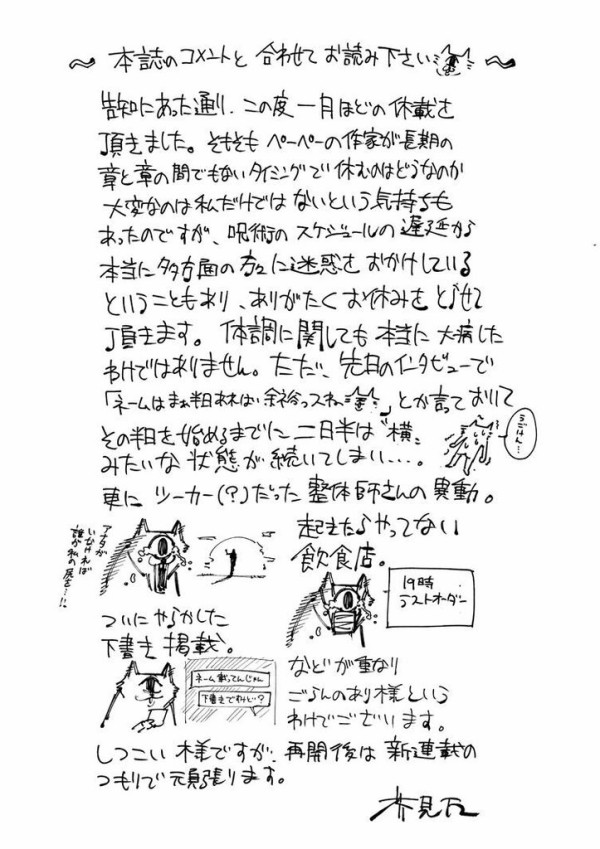 〜 本誌のコメントと 合わせて お読み下さい 〜
告知にあった通り、この度 一月ほどの休載を
頂きました。そもそも ペーペーの作家が長期の
章と章の間でもないタイミングで 休むのはどうなのか
大変なのは私だけでは ないという気持ちも
あったのですが、呪術の スケジュールの 遅延から
本当に多方面の方々に迷惑を おかけしている
ということもあり、ありがたく お休みを とらせて
頂きます。 体調に関しても 本当に 大病した
わけではありません。ただ、先日のインタビューで
「ネームはまぁ半日あれば 余裕っスね」とか言っておいて
その半日を始めるまでに 二日半は〝横〟
みたいな 状態が 続いてしまい…。
うごけん…
更に ツーカー(?)だった 整体師さんの 異動。
アナタが
いなければ
誰が私の尻を…!!
起きたらやってない
飲食店。
19時
ラストオーダー
ついに やらかした
下書き 掲載。
ネーム載ってんじゃん
下書きですけど?
などが 重なり
ごらんのあり様という
わけでございます。
しつこい 様ですが、再開後は 新連載の
つもりで 頑張ります。
芥見下々